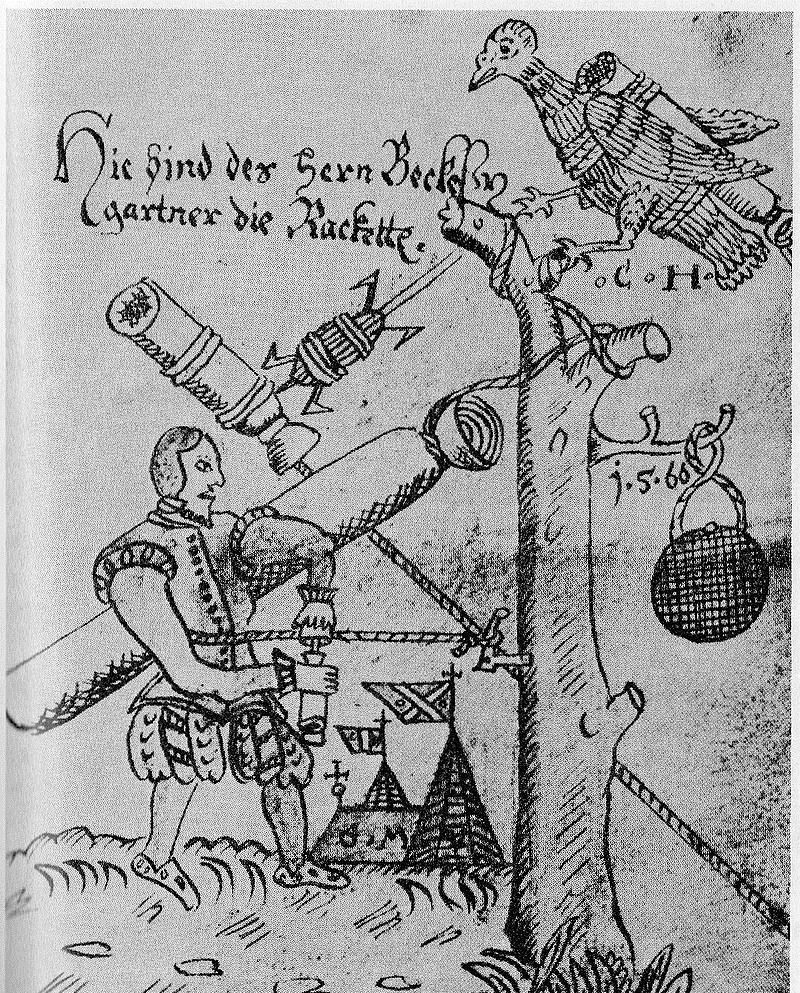 Hie sind des Hern
gartner die Rackette.
∘ C ∘ H ∘
j. 5. 60